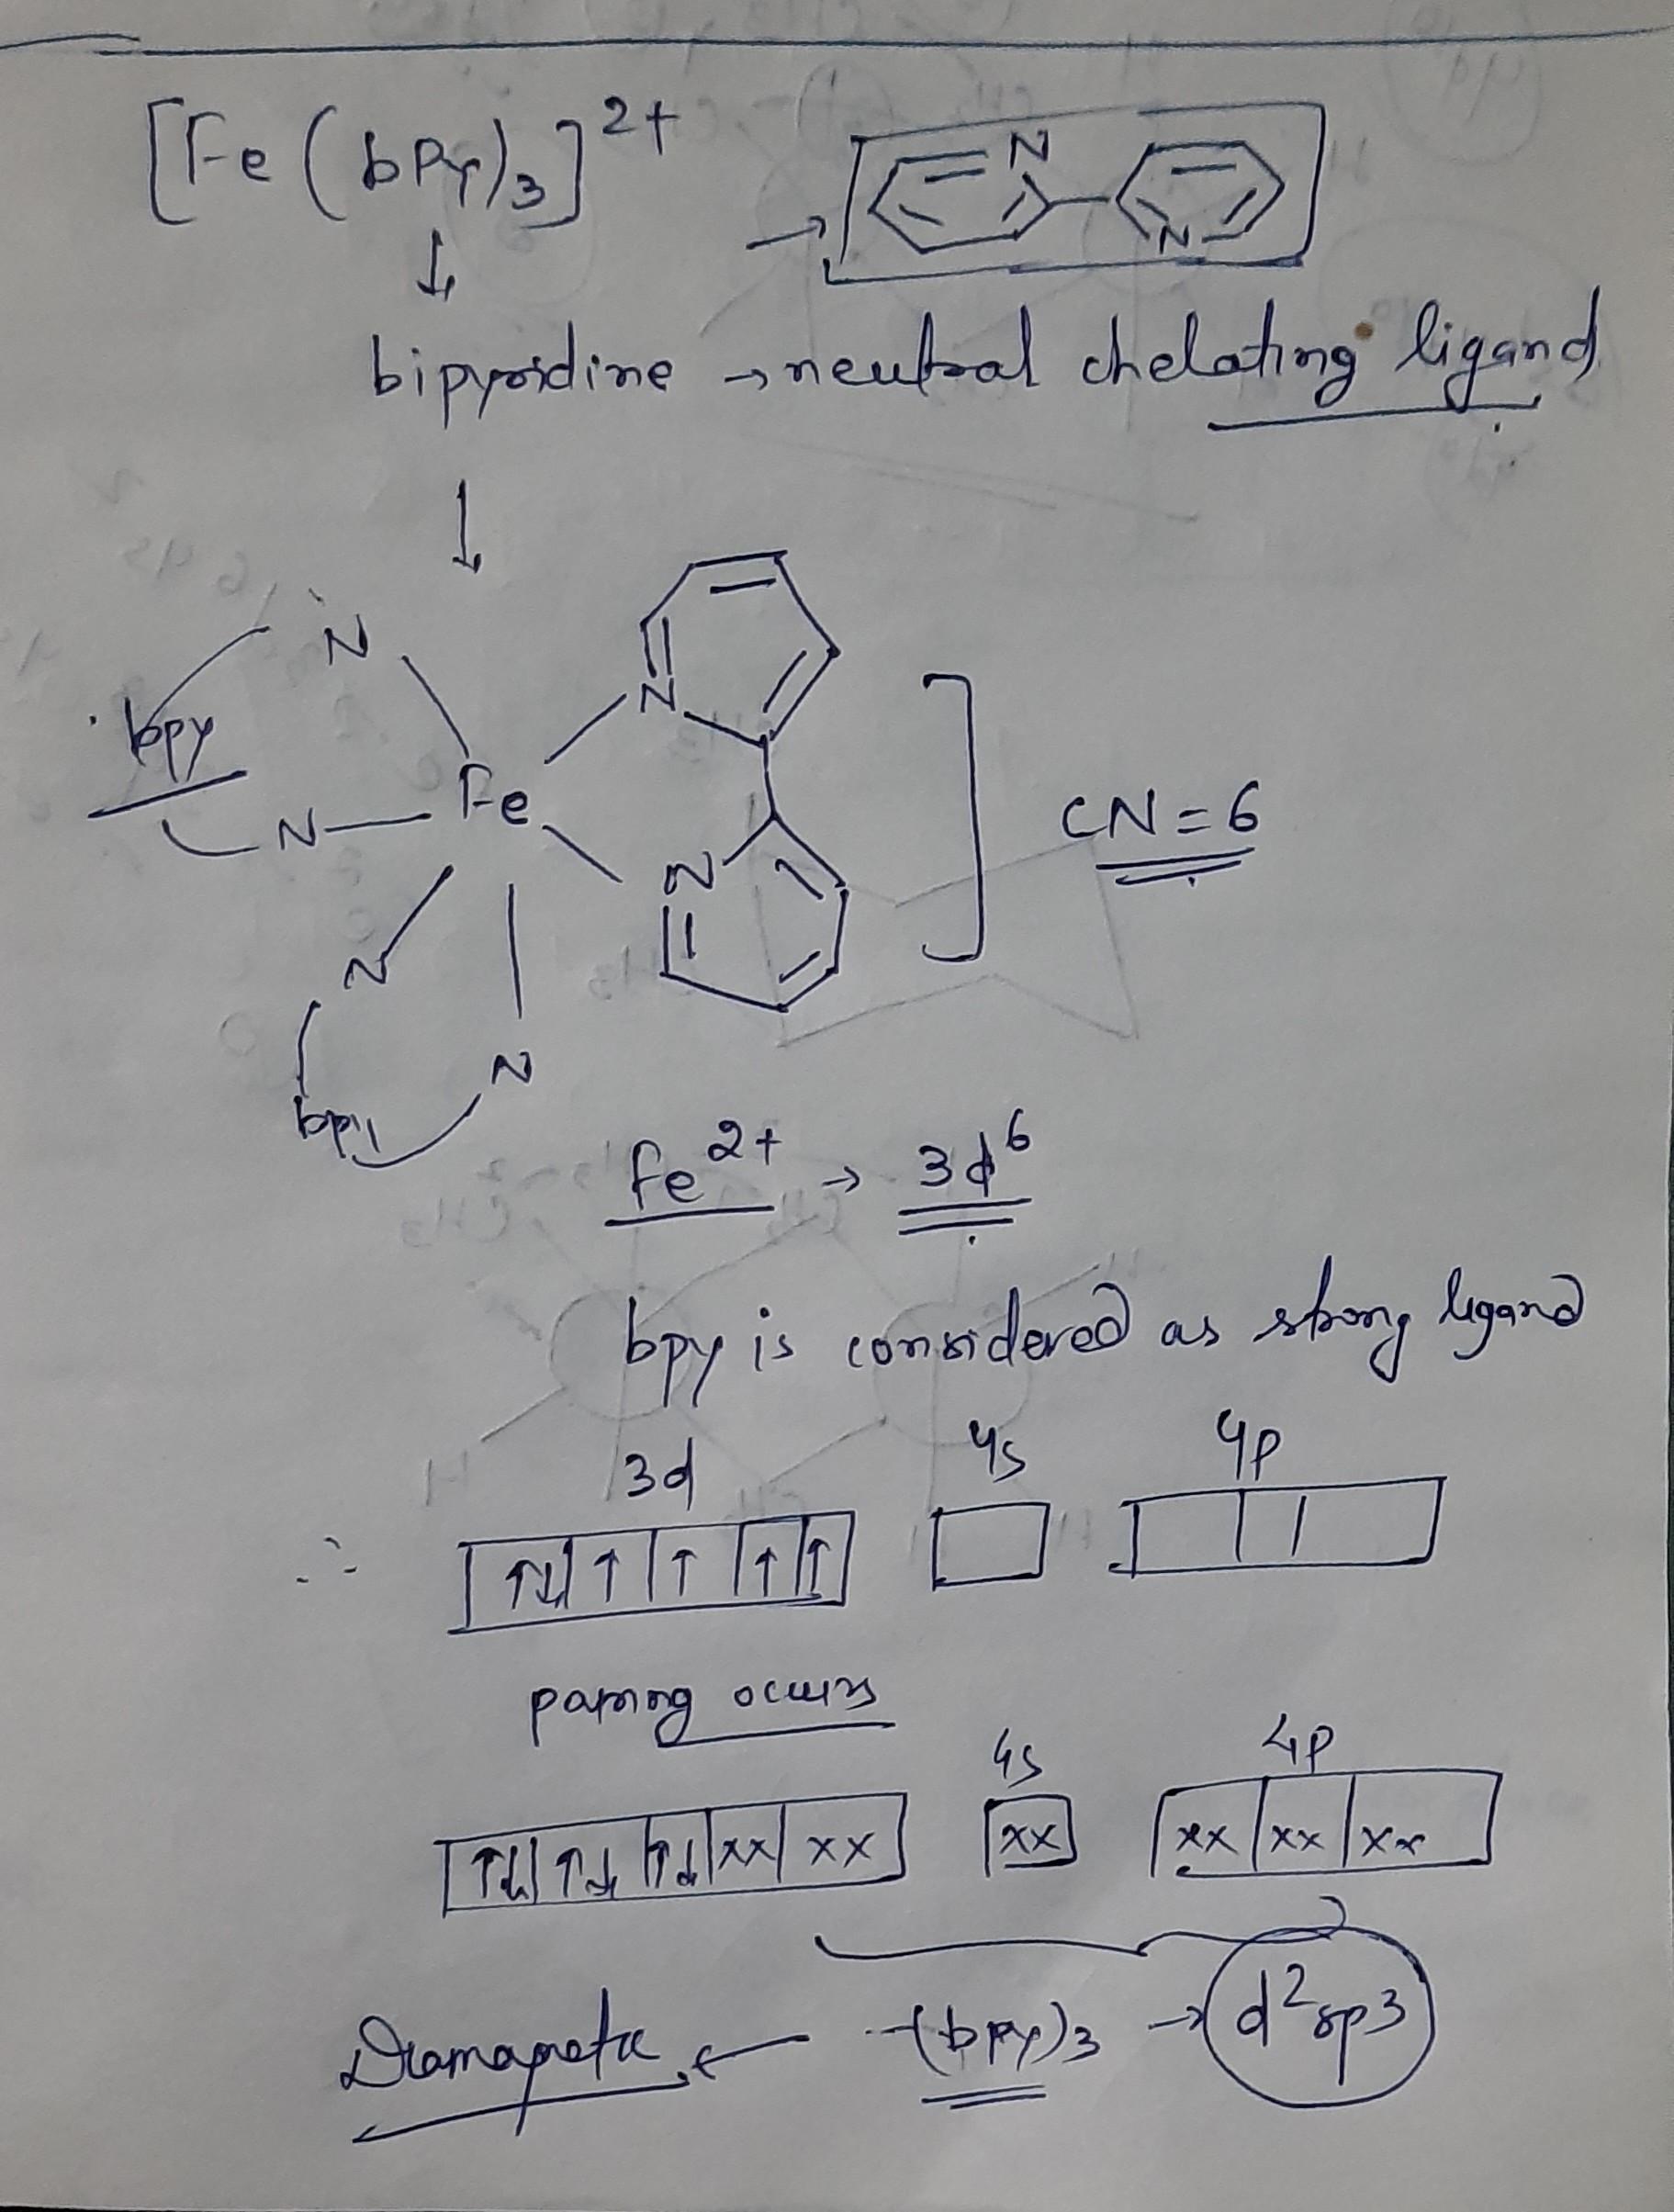 [Fe(bpy)₃]²⁺ →
N
N
↓
bipyridine → neutral chelating ligand
↓
N
N
bpy
Fe
CN = 6
N
N
N
N
bpy
Fe²⁺ → 3d⁶
bpy is considered as strong ligand
3d 4s 4p
∴ ↑↓ ↑ ↑ ↑ ↑
pairing occurs
4s 4p
↑↓ ↑↓ ↑↓ xx xx xx xx xx xx
Diamagnetic ← (bpy)₃ → d²sp3